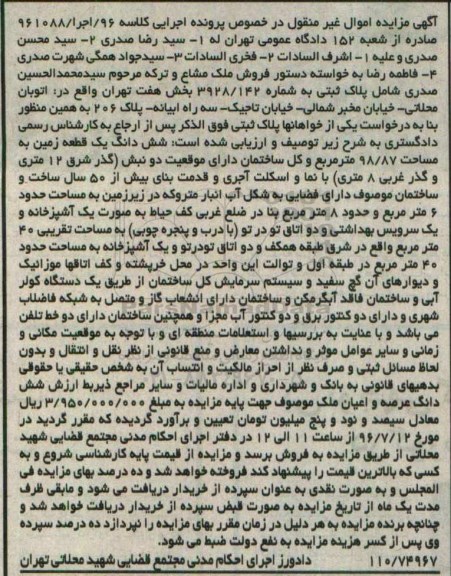 آگهی مزایده اموال غیر منقول در خصوص پرونده اجرایی کلاسه ۹۶/اجرا/۹۶۱۰۸۸
صادره از شعبه ۱۵۲ دادگاه عمومی تهران له ۱- سید رضا صدری ۲- سید محسن
صدری و علیه ۱- اشرف السادات ۲- فخری السادات ۳- سیدجواد همگی شهرت صدری
۴- فاطمه رضا به خواسته دستور فروش ملک مشاع و ترکه مرحوم سیدمحمدالحسین
صدری شامل پلاک ثبتی به شماره ۳۹۲۸/۱۴۲ بخش هفت تهران واقع در: اتوبان
محلاتی- خیابان مخبر شمالی- خیابان تاجیک- سه راه ابیانه- پلاک ۲۰۶ به همین منظور
بنا به درخواست یکی از خواهانها پلاک ثبتی فوق الذکر پس از ارجاع به کارشناس رسمی
دادگستری به شرح زیر توصیف و ارزیابی شده است: شش دانگ یک قطعه زمین به
مساحت ۹۸/۸۷ مترمربع و کل ساختمان دارای موقعیت دو نبش (گذر شرق ۱۲ متری
و گذر غربی ۸ متری) با نما و اسکلت آجری و قدمت بنای بیش از ۵۰ سال ساخت و
ساختمان موصوف دارای فضایی به شکل آب انبار متروکه در زیرزمین به مساحت حدود
۶ متر مربع و حدود ۸ متر مربع بنا در ضلع غربی کف حیاط به صورت یک آشپزخانه و
یک سرویس بهداشتی و دو اتاق تو در تو (با درب و پنجره چوبی) به مساحت تقریبی ۴۰
متر مربع واقع در شرق طبقه همکف و دو اتاق تودرتو و یک آشپزخانه به مساحت حدود
۴۰ متر مربع در طبقه اول و توالت این واحد در محل خرپشته و کف اتاقها موزائیک
و دیوارهای آن گچ سفید و سیستم سرمایش کل ساختمان از طریق یک دستگاه کولر
آبی و ساختمان فاقد آبگرمکن و ساختمان دارای انشعاب گاز و متصل به شبکه فاضلاب
شهری و دارای دو کنتور برق و دو کنتور آب مجزا و همچنین ساختمان دارای دو خط تلفن
می باشد و با عنایت به بررسیها و استعلامات منطقه ای و با توجه به موقعیت مکانی و
زمانی و سایر عوامل موثر و نداشتن معارض و منع قانونی از نظر نقل و انتقال و بدون
لحاظ مسائل ثبتی و صرف نظر از احراز مالکیت و انتساب آن به شخص حقیقی یا حقوقی
بدهیهای قانونی به بانک و شهرداری و اداره مالیات و سایر مراجع ذیربط ارزش شش
دانگ عرصه و اعیان ملک موصوف جهت پایه مزایده به مبلغ ۳/۹۵۰/۰۰۰/۰۰۰ ریال
معادل سیصد و نود و پنج میلیون تومان تعیین و برآورد گردیده که مقرر گردید در
مورخ ۹۶/۷/۱۲ از ساعت ۱۱ الی ۱۲ در دفتر اجرای احکام مدنی مجتمع قضایی شهید
محلاتی از طریق مزایده به فروش برسد و مزایده از قیمت پایه کارشناسی شروع و به
کسی که بالاترین قیمت را پیشنهاد کند فروخته خواهد شد و ده درصد بهای مزایده فی
المجلس و به صورت نقدی به عنوان سپرده از خریدار دریافت می شود و مابقی ظرف
مدت یک ماه از تاریخ مزایده به صورت قبض سپرده از خریدار دریافت خواهد شد و
چنانچه برنده مزایده به هر دلیل در زمان مقرر بهای مزایده را نپردازد ده درصد سپرده
وی پس از کسر هزینه مزایده به نفع دولت ضبط می شود.
۱۱۰/۷۴۹۶۷ دادورز اجرای احکام مدنی مجتمع قضایی شهید محلاتی تهران